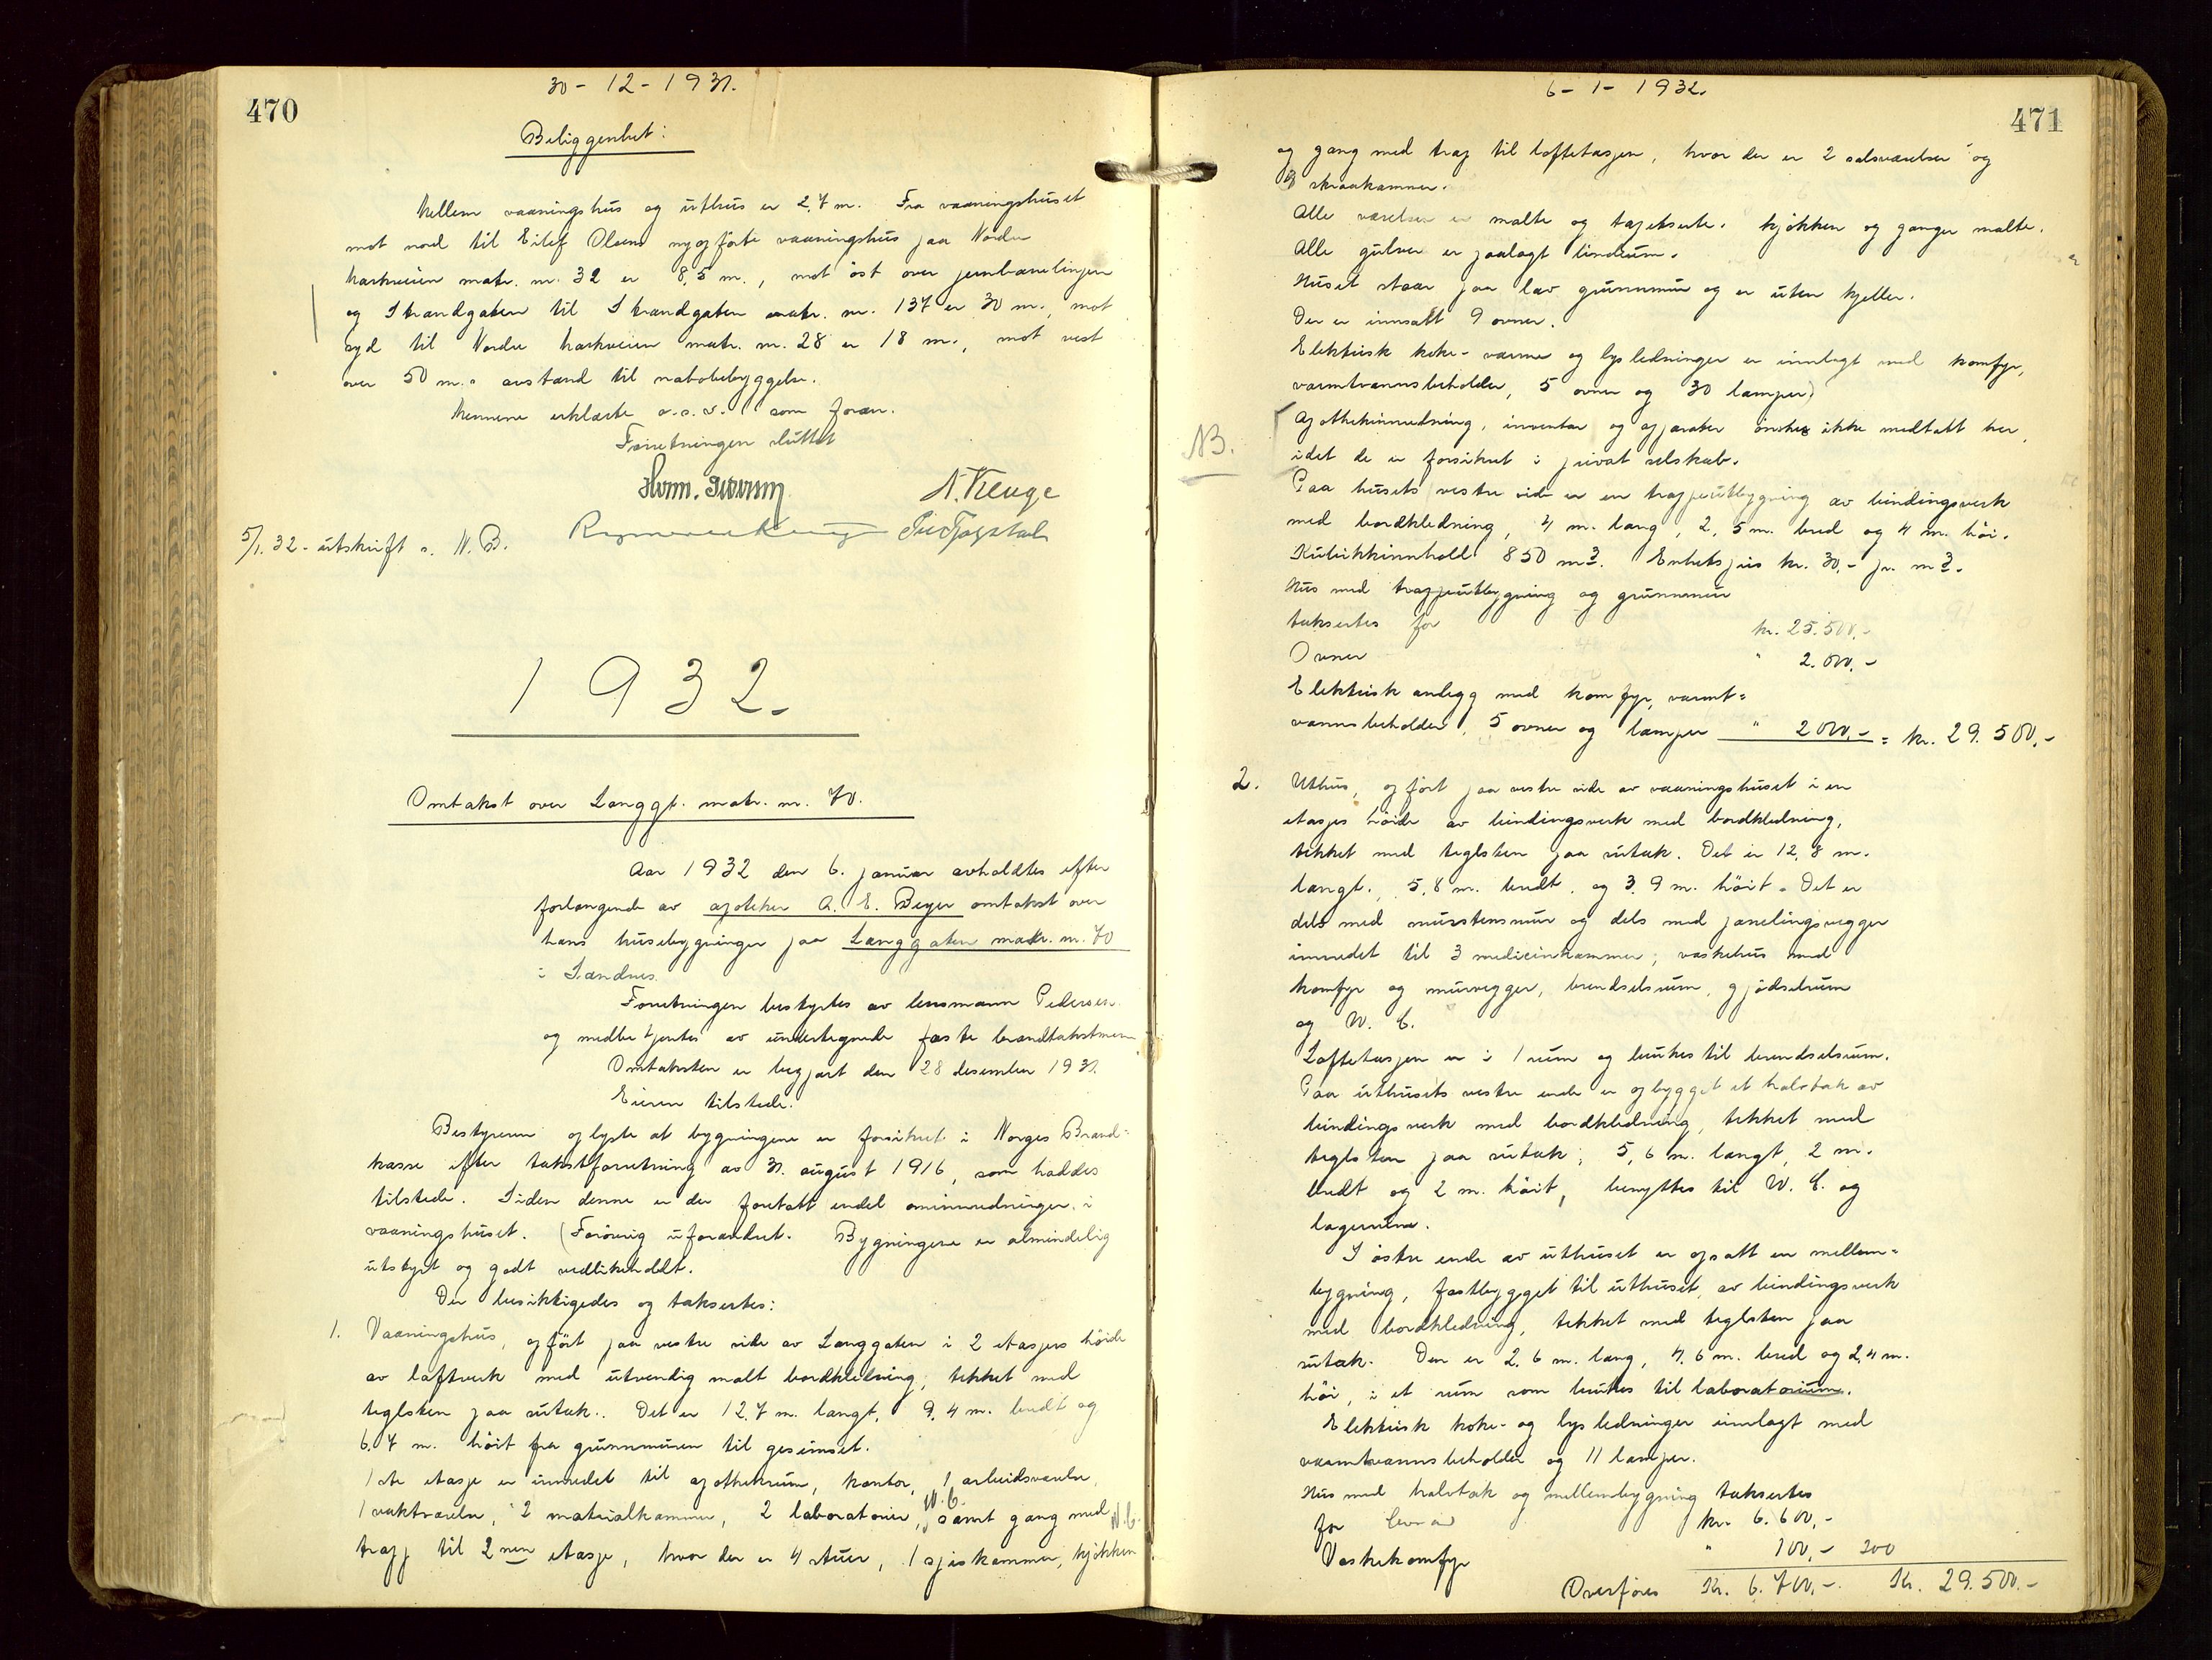 470
30 - 12 - 1931.
Beliggenhet:
Mellem vaaningshus og uthus er 2,7 m. Fra vaaningshuset
mot nord til Eilef Olsens nyopførte vaaningshus paa Nordre
Markveien matr. nr. 32 er 8,5 m., mot øst over jernbanelinjen
og Strandgaten til Strandgaten matr. nr. 137 er 30 m., mot
syd til Nordre Markveien matr. nr. 28 er 18 m., mot vest
over 50 m.s avstand til nabobebyggelse.
Mennene erklærte o.s.v. som foran.
Forretningen sluttet
5/1. 32 - utskrift s. N.B.
1932.
Omtakst over Langgt. matr. nr. 70.
Aar 1932 den 6. januar avholdtes efter
forlangende av apoteker A. E. Beyer omtakst over
hans husebygninger paa Langgaten matr. nr. 70
i Sandnes.
Forretningen bestyrtes av lensmann Pedersen
og medbetjentes av undertegnede faste brandtakstmenn
Omtaksten er begjært den 28 desember 1931.
Eieren tilstede.
Bestyreren oplyste at bygningene er forsikret i Norges Brand-
kasse efter takstforretning av 31. august 1916, som haddes
tilstede. Siden denne er der foretatt endel ominnredninger i
vaaningshuset. Forøvrig uforandret. Bygningene er almindelig
utstyrt og godt vedlikeholdt.
Der besiktigedes og taksertes:
1. Vaaningshus, opført paa vestre side av Langgaten i 2 etasjers høide
av laftverk med utvendig malt bordkledning, tekket med
teglsten paa sutak. Det er 12,7 m. langt, 9,4 m. bredt og
6,7 m. høit fra grunnmuren til gesimset.
1ste etasje er innredet til apothekrum, kontor, 1 arbeidsværelse,
1 vaktværelse, 2 materialkammer, 2 laboratorier, W.C. samt gang med W.C.
trapp til 2nen etasje, hvor der er 4 stuer, 1 spiskammer, kjøkken
471
6 - 1 - 1932.
og gang med trap til loftetasjen, hvor der er 2 salsværelser og
skraakammer.
Alle værelser er malte og tapetserte. Kjøkken og ganger malte.
Alle gulver er paalagt linoleum.
Huset staar paa lav grunnmur og er uten kjeller.
Der er innsatt 9 ovner.
Elektrisk koke- varme og lysledninger er innlagt med komfyr,
varmtvannsbeholder, 5 ovner og 30 lamper.
NB.
Apothekinnredning, inventar og apparater ønskes ikke medtatt her,
idet de er forsikret i privat selskab.
Paa husets vestre side er en trappeutbygning av bindingsverk
med bordkledning, 4 m. lang, 2,5 m. bred og 4 m. høi.
Kubikkinnhold 850 m3. Enhetspris kr. 30,- pr. m3.
Hus med trappeutbygning og grunnmur
taksertes for kr. 25.500,-
Ovner " 2.000,-
Elektrisk anlegg med komfyr, varmt-
vannsbeholder, 5 ovner og lamper " 2000,- = kr. 29.500,-
2. Uthus, opført paa vestre side av vaaningshuset i en
etasjes høide av bindingsverk med bordkledning,
tekket med teglsten paa sutak. Det er 12,8 m.
langt, 5,8 m. bredt, og 3,9 m. høit. Det er
dels med murstensmur og dels med panelingsvegger
innredet til 3 medicinkammer, vaskehus med
komfyr og murvegger, brendselsrum, gjødselrum
og W. C.
Loftetasjen er i 1 rum og brukes til brendselsrum.
Paa uthusets vestre ende er opbygget et halvtak av
bindingsverk med bordkledning, tekket med
teglsten paa sutak, 5,6 m. langt, 2 m.
bredt og 2 m. høit, benyttes til W. C. og
lagerrum.
I østre ende av uthuset er opsatt en mellem-
bygning, fastbygget til uthuset, av bindingsverk
med bordkledning, tekket med teglsten paa
sutak. Den er 2,6 m. lang, 4,6 m. bred og 2,4 m.
høi, i et rum som brukes til laboratorium.
Elektrisk koke- og lysledninger innlagt med
varmtvannsbeholder og 11 lamper.
Hus med halvtak og mellembygning taksertes
for kr. 6.600,-
Vaskekomfyr " 100,- 200
Overføres Kr. 6.700,- Kr. 29.500,-